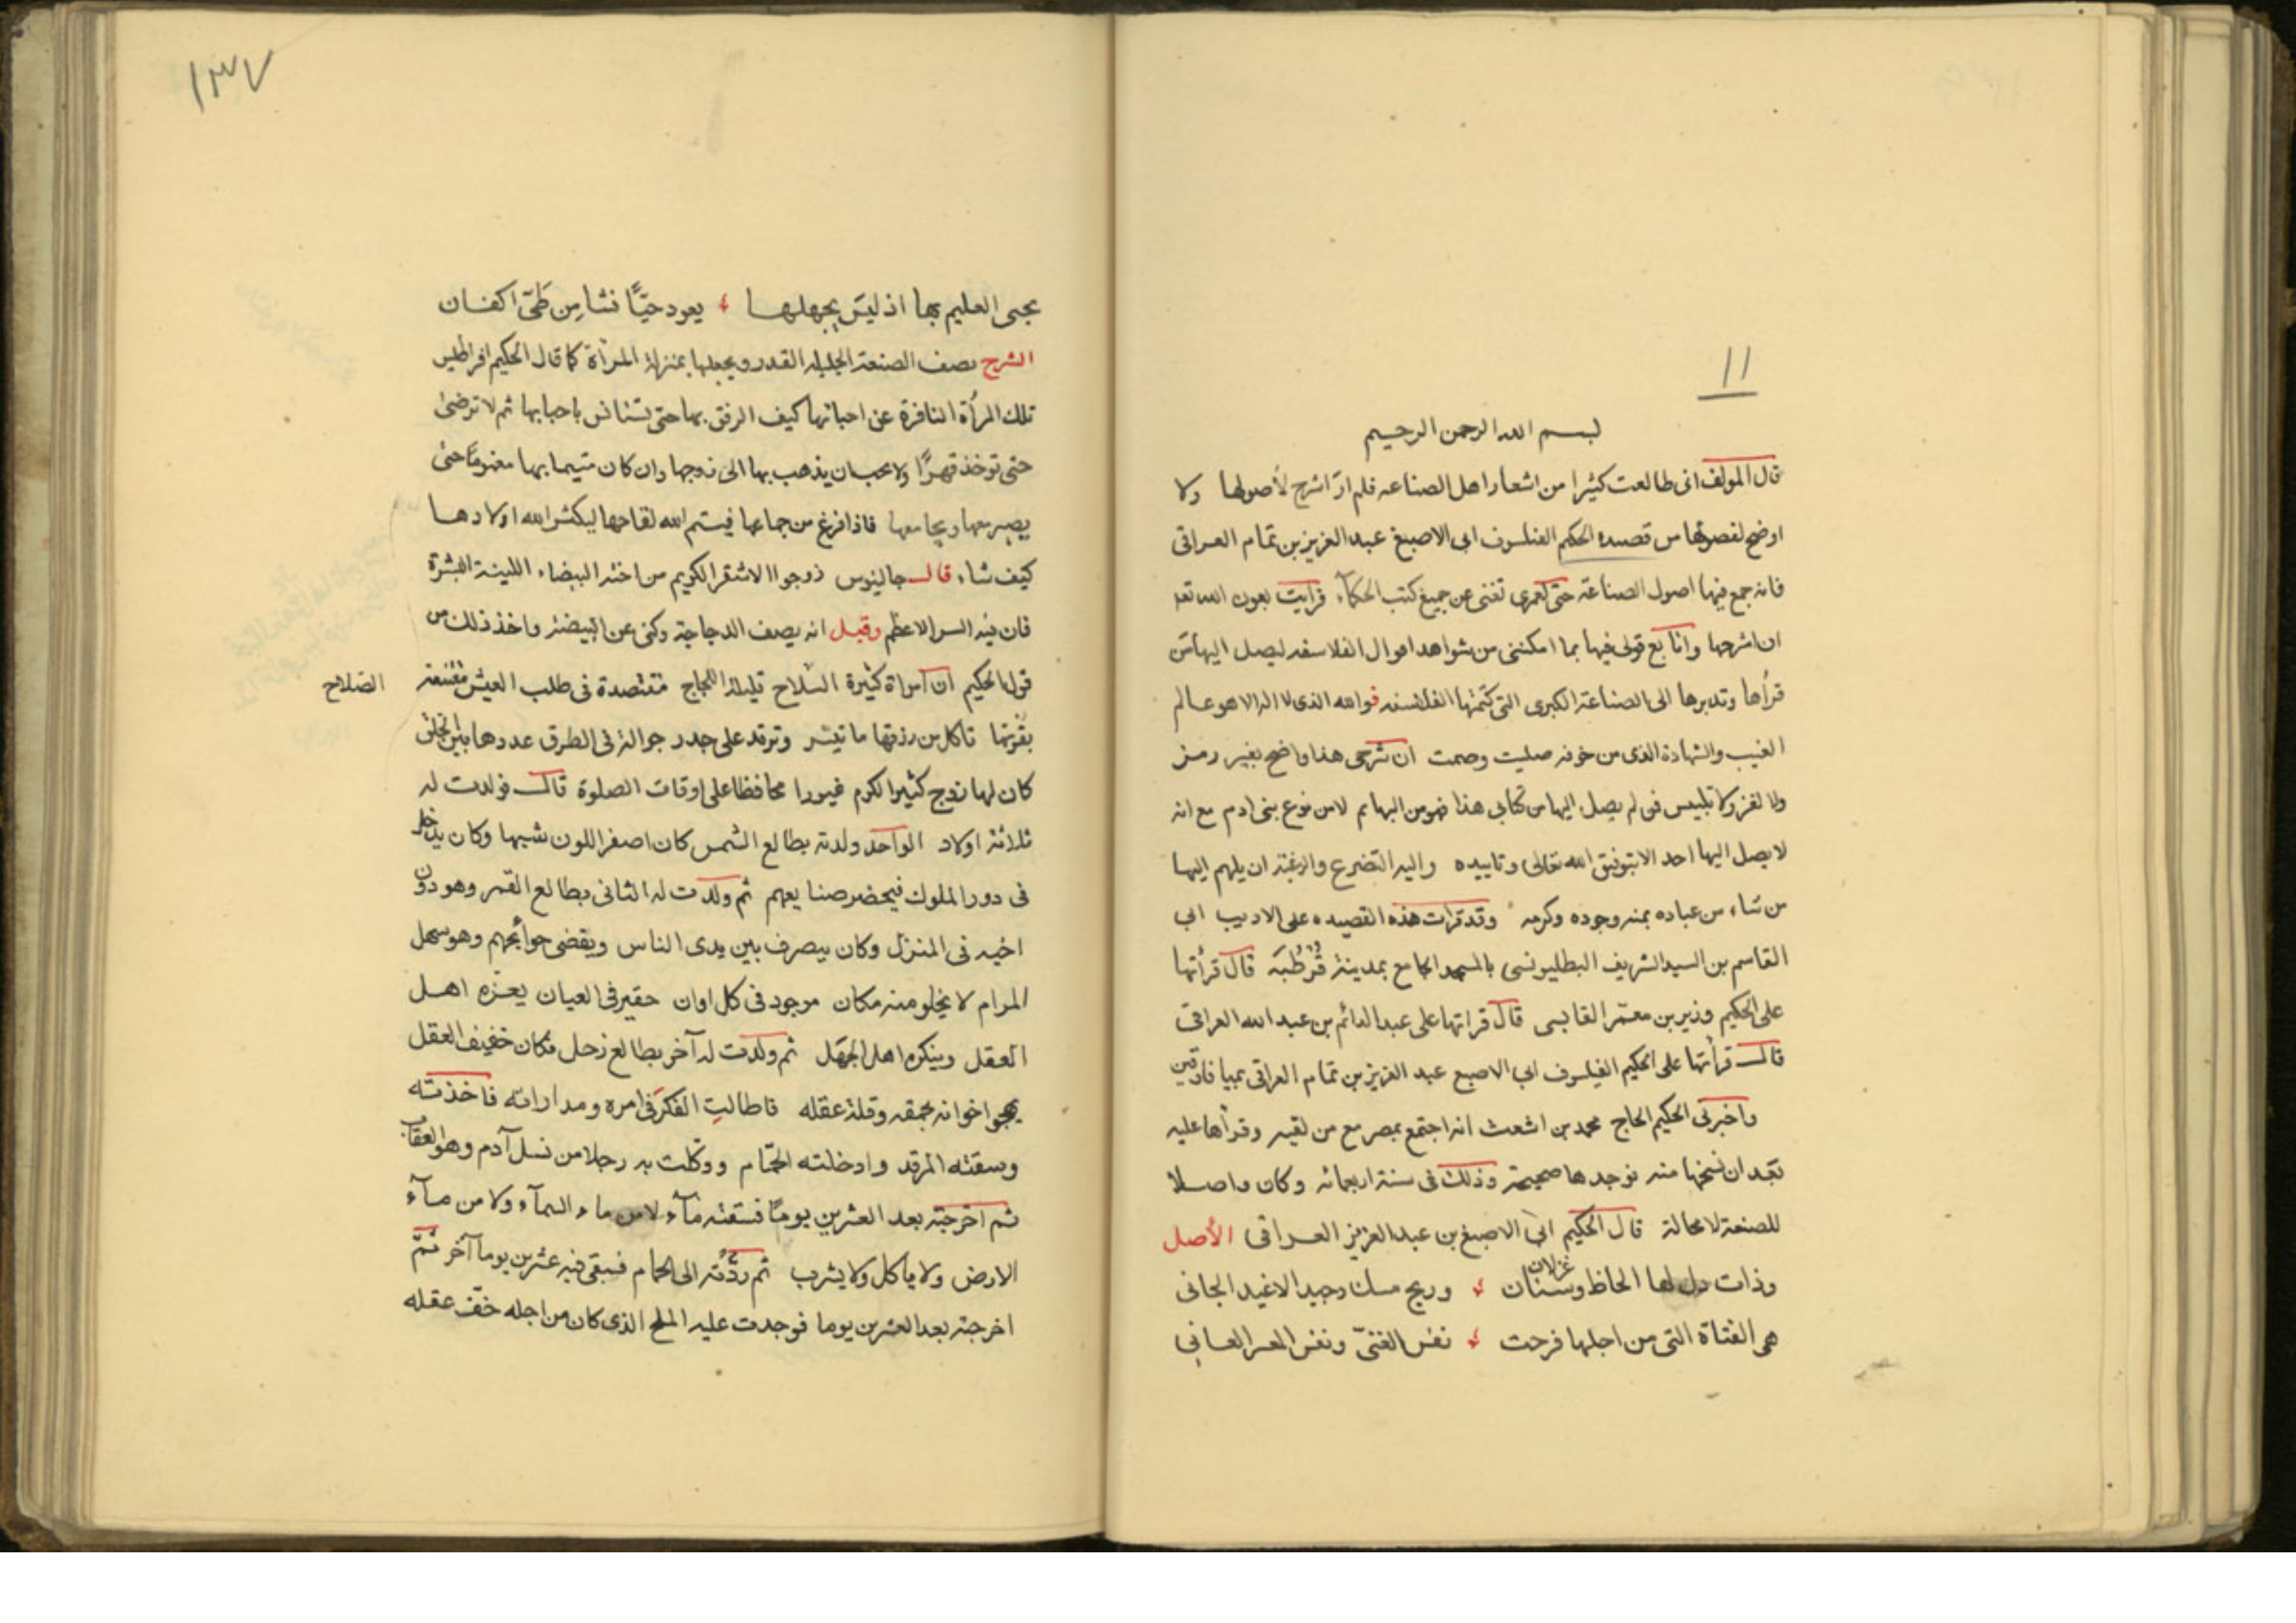 ١١
بسم الله الرحمن الرحيم
قال المولف انى طالعت كثيرا من اشعار اهل الصناعه فلم ار اشرح لأصولها ولا
اوضح لفصولها من قصيده الحكيم الفيلسوف ابى الاصبغ عبد العزيز بن تمام العراقى
فانه جمع فيها اصول الصناعة حتى لعمرى تغنى عن جميع كتب الحكمآء فرايت بعون الله تعالى
ان اشرحها وانا بع قولى فيها بما امكننى من شواهد اقوال الفلاسفه ليصل اليها من
قرأها وتدبرها الى الصناعة الكبرى التى كتمتها الفلاسفه فوالله الذى لا اله الا هو عالم
الغيب والشهادة الذى من خوفه صليت وصمت ان شرحى هذا واضح بغير رمز
ولا لغز ولا تلبيس فمن لم يصل اليها من كتابى هذا فهو من البهايم لا من نوع بنى ادم مع انه
لا يصل اليها احد الا بتوفيق الله تعالى وتاييده واليه التضرع والرغبة ان يلهم اليها
من شاء من عباده بمنه وجوده وكرمه وقد قرات هذه القصيده على الاديب ابى
القاسم بن السيد الشريف البطليونسى بالمسجد الجامع بمدينة قرطبة قال قرأتها
على الحكيم وزير بن معمر القابسى قال قراتها على عبد الدائم بن عبد الله العراقى
قال قرأتها على الحكيم الفيلسوف ابى الاصبع عبد العزيز بن تمام العراقى بميافارقين
واخبرنى الحكيم الحاج محمد بن اشعث انه اجتمع بمصر مع من لقيه وقرأها عليه
بعد ان نسخها منه فوجدها صحيحة وذلك فى سنة اربعمائه وكان واصلا
للصنعة لا محالة قال الحكيم ابى الاصبغ بن عبد العزيز العراقى الأصل
غزلان
وذات دل لها الحاظ وسنان وريح مسك وجيد الاغيد الجانى
هى الفتاة التى من اجلها فرحت نفس الغنىّ ونفس المعسر العانى
١٣٧
يحيى العليم بها اذ ليس يجهلها يعود حيًّا نشا من طىّ اكفان
الشرح يصف الصنعة الجليله القدر ويجعلها بمنزلة المرأة كما قال الحكيم افراطيس
تلك المرأة النافرة عن احبائها كيف الرفق بها حتى تستانس باحبابها ثم لا ترضى
حتى توخذ قهرًا ولا تحب ان يذهب بها الى زوجها وان كان متيما بها مغرومًا حتى
يصير معها ويجامعها فاذا فرغ من جماعها فيتم الله لقاحها ليكثر الله اولادها
كيف شاء قال جالينوس زوجوا الاشقر الكريم من اخته البيضاء اللينة البشرة
فان فيه السر الاعظم وقيل انه يصف الدجاجة وكنى عن البيضة واخذ ذلك من
قول الحكيم ان امراة كثيرة السلاح قليلة اللجاج مقتصدة فى طلب العيش مقتنعة
الصلاح
بقوتها تاكل من رزقها ما تيسر وترقد على جدر جوالة فى الطرق عددها بين الخلق
كان لها زوج كثير الكرم غيورا محافظا على اوقات الصلوة قال فولدت له
ثلاثة اولاد الواحد ولدته بطالع الشمس كان اصفر اللون شبيها وكان يدخل
فى دور الملوك فيحضر صنايعهم ثم ولدت له الثانى بطالع القمر وهو دون
اخيه فى المنزل وكان يتصرف بين يدى الناس ويقضى حوائجهم وهو سهل
المرام لا يخلو منه مكان موجود فى كل اوان حقير فى العيان يعزه اهل
العقل وينكره اهل الجهل ثم ولدت له آخر بطالع زحل فكان خفيف العقل
يهجوا اخوانه بحمقه وقلة عقله فاطالت الفكر فى امره ومداراته فاخذته
وسقته المرقد وادخلته الحمّام ووكلت به رجلا من نسل آدم وهو العقاب
ثم اخرجته بعد العشرين يومًا فسقته مآء لا من ماء السمآء ولا من مآء
الارض ولا ياكل ولا يشرب ثم ردّته الى الحمام فبقى فيه عشرين يوما آخر ثمّ
اخرجته بعد العشرين يوما فوجدت عليه الملح الذى كان من اجله خفّ عقله